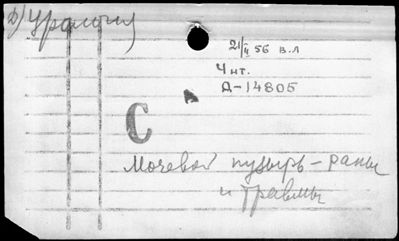 д) Урология
21/II 56 в.л
Чит.
Д-14805
С
Мочевой пузырь – раны
и травмы